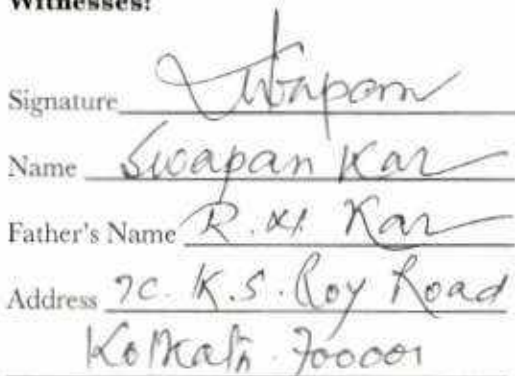 Witnesses:
Signature Swapan
Name Swapan Kar
Father's Name R. Kar
Address 7C. K.S. Roy Road
Kolkata. 700001